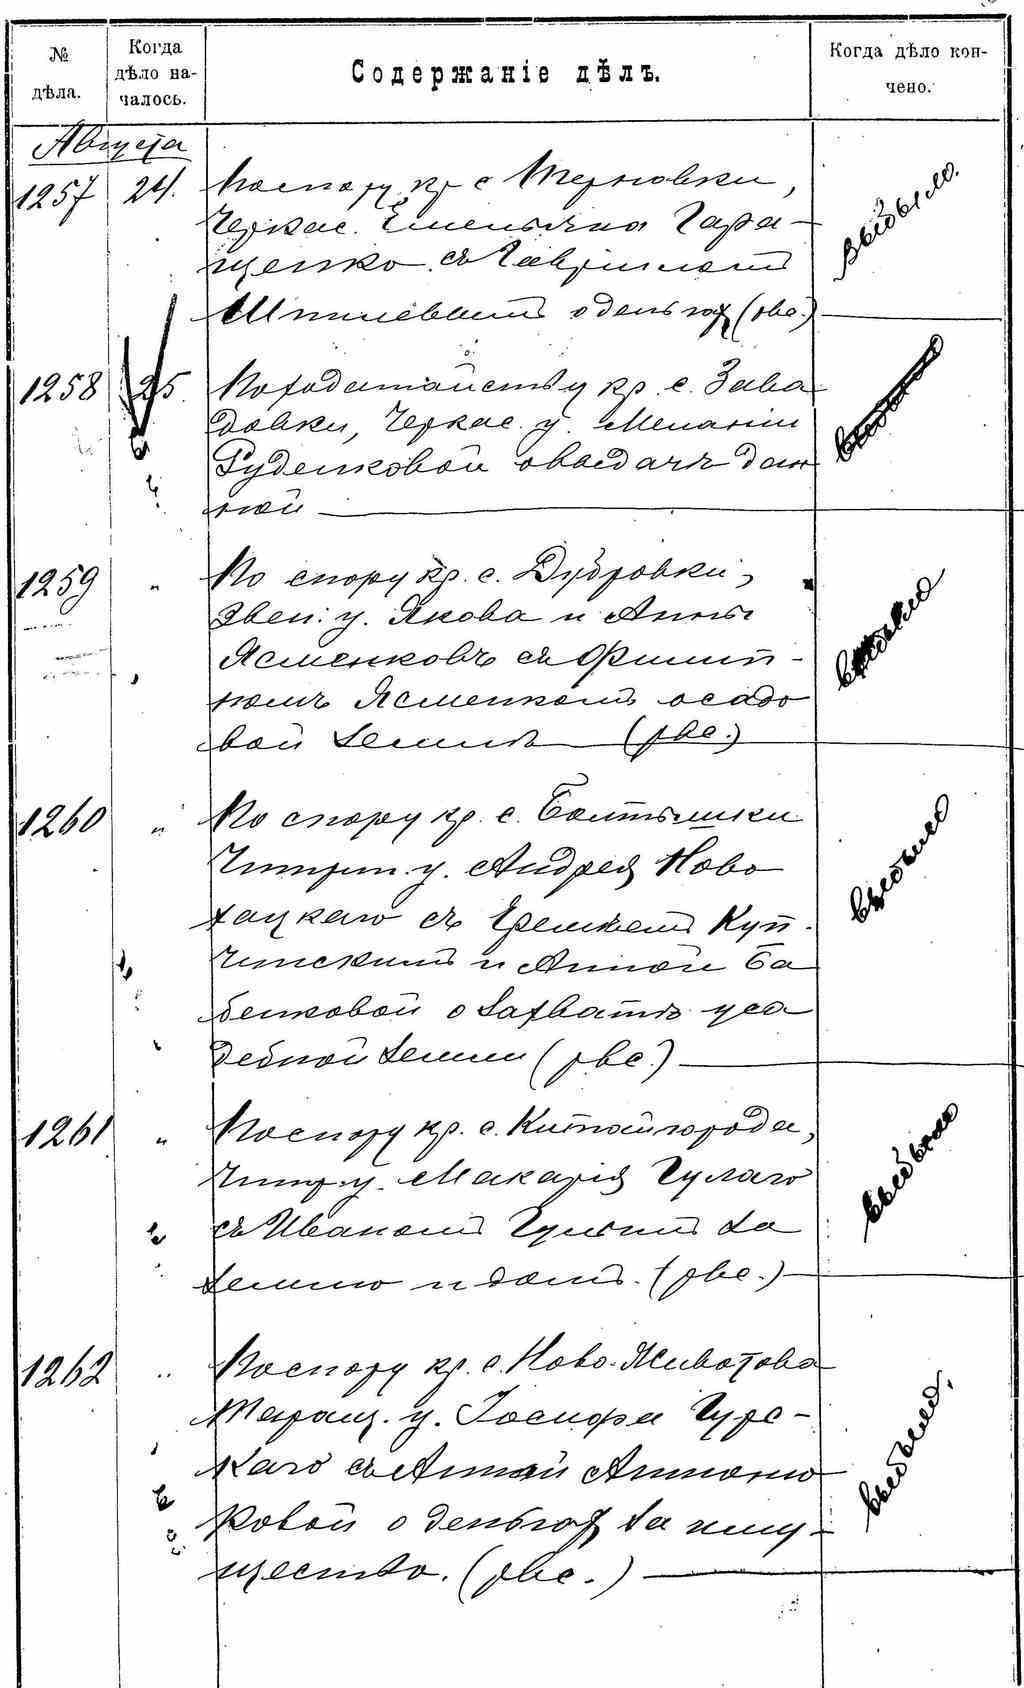 № дѣла.
Когда дѣло на-
чалось.
Содержаніе дѣлъ.
Когда дѣло кон-
чено.
Августа
1257 24. По спору кр. с. Терновки,
Черкас. Емельяна Гара-
щенко съ Гавріиломъ
о деньгах (рвс.)
выбыло.
1258 25. По ходатайству кр. с. Зава
довки, Черкас. у. Меланіи
Руденковой о выдачѣ дан
ной
выбыло
1259 " По спору кр. с. Дубровки,
Звен. у. Якова и Анны
Ясменковъ съ Филип-
помъ Ясменкомъ о садо
вой землѣ (рвс.)
выбыло
1260 " По спору кр. с. Болтышки
Чигрин. у. Андрея Ново
хацкаго съ Еремѣемъ Куп-
чинскимъ и Анной Ба
бенковой о захватѣ уса
дебной земли (рвс.)
выбыло
1261 " По спору кр. с. Китайгорода,
Чигр. у. Макарія Гулаго
съ Иваномъ Гулымъ за
землю и домъ. (рвс.)
выбыло
1262 " По спору кр. с. Ново-Животова
Таращ. у. Іосифа Гурс-
каго съ Анной Антоню
ковой о деньгах за иму-
щество. (рвс.)
выбыло.